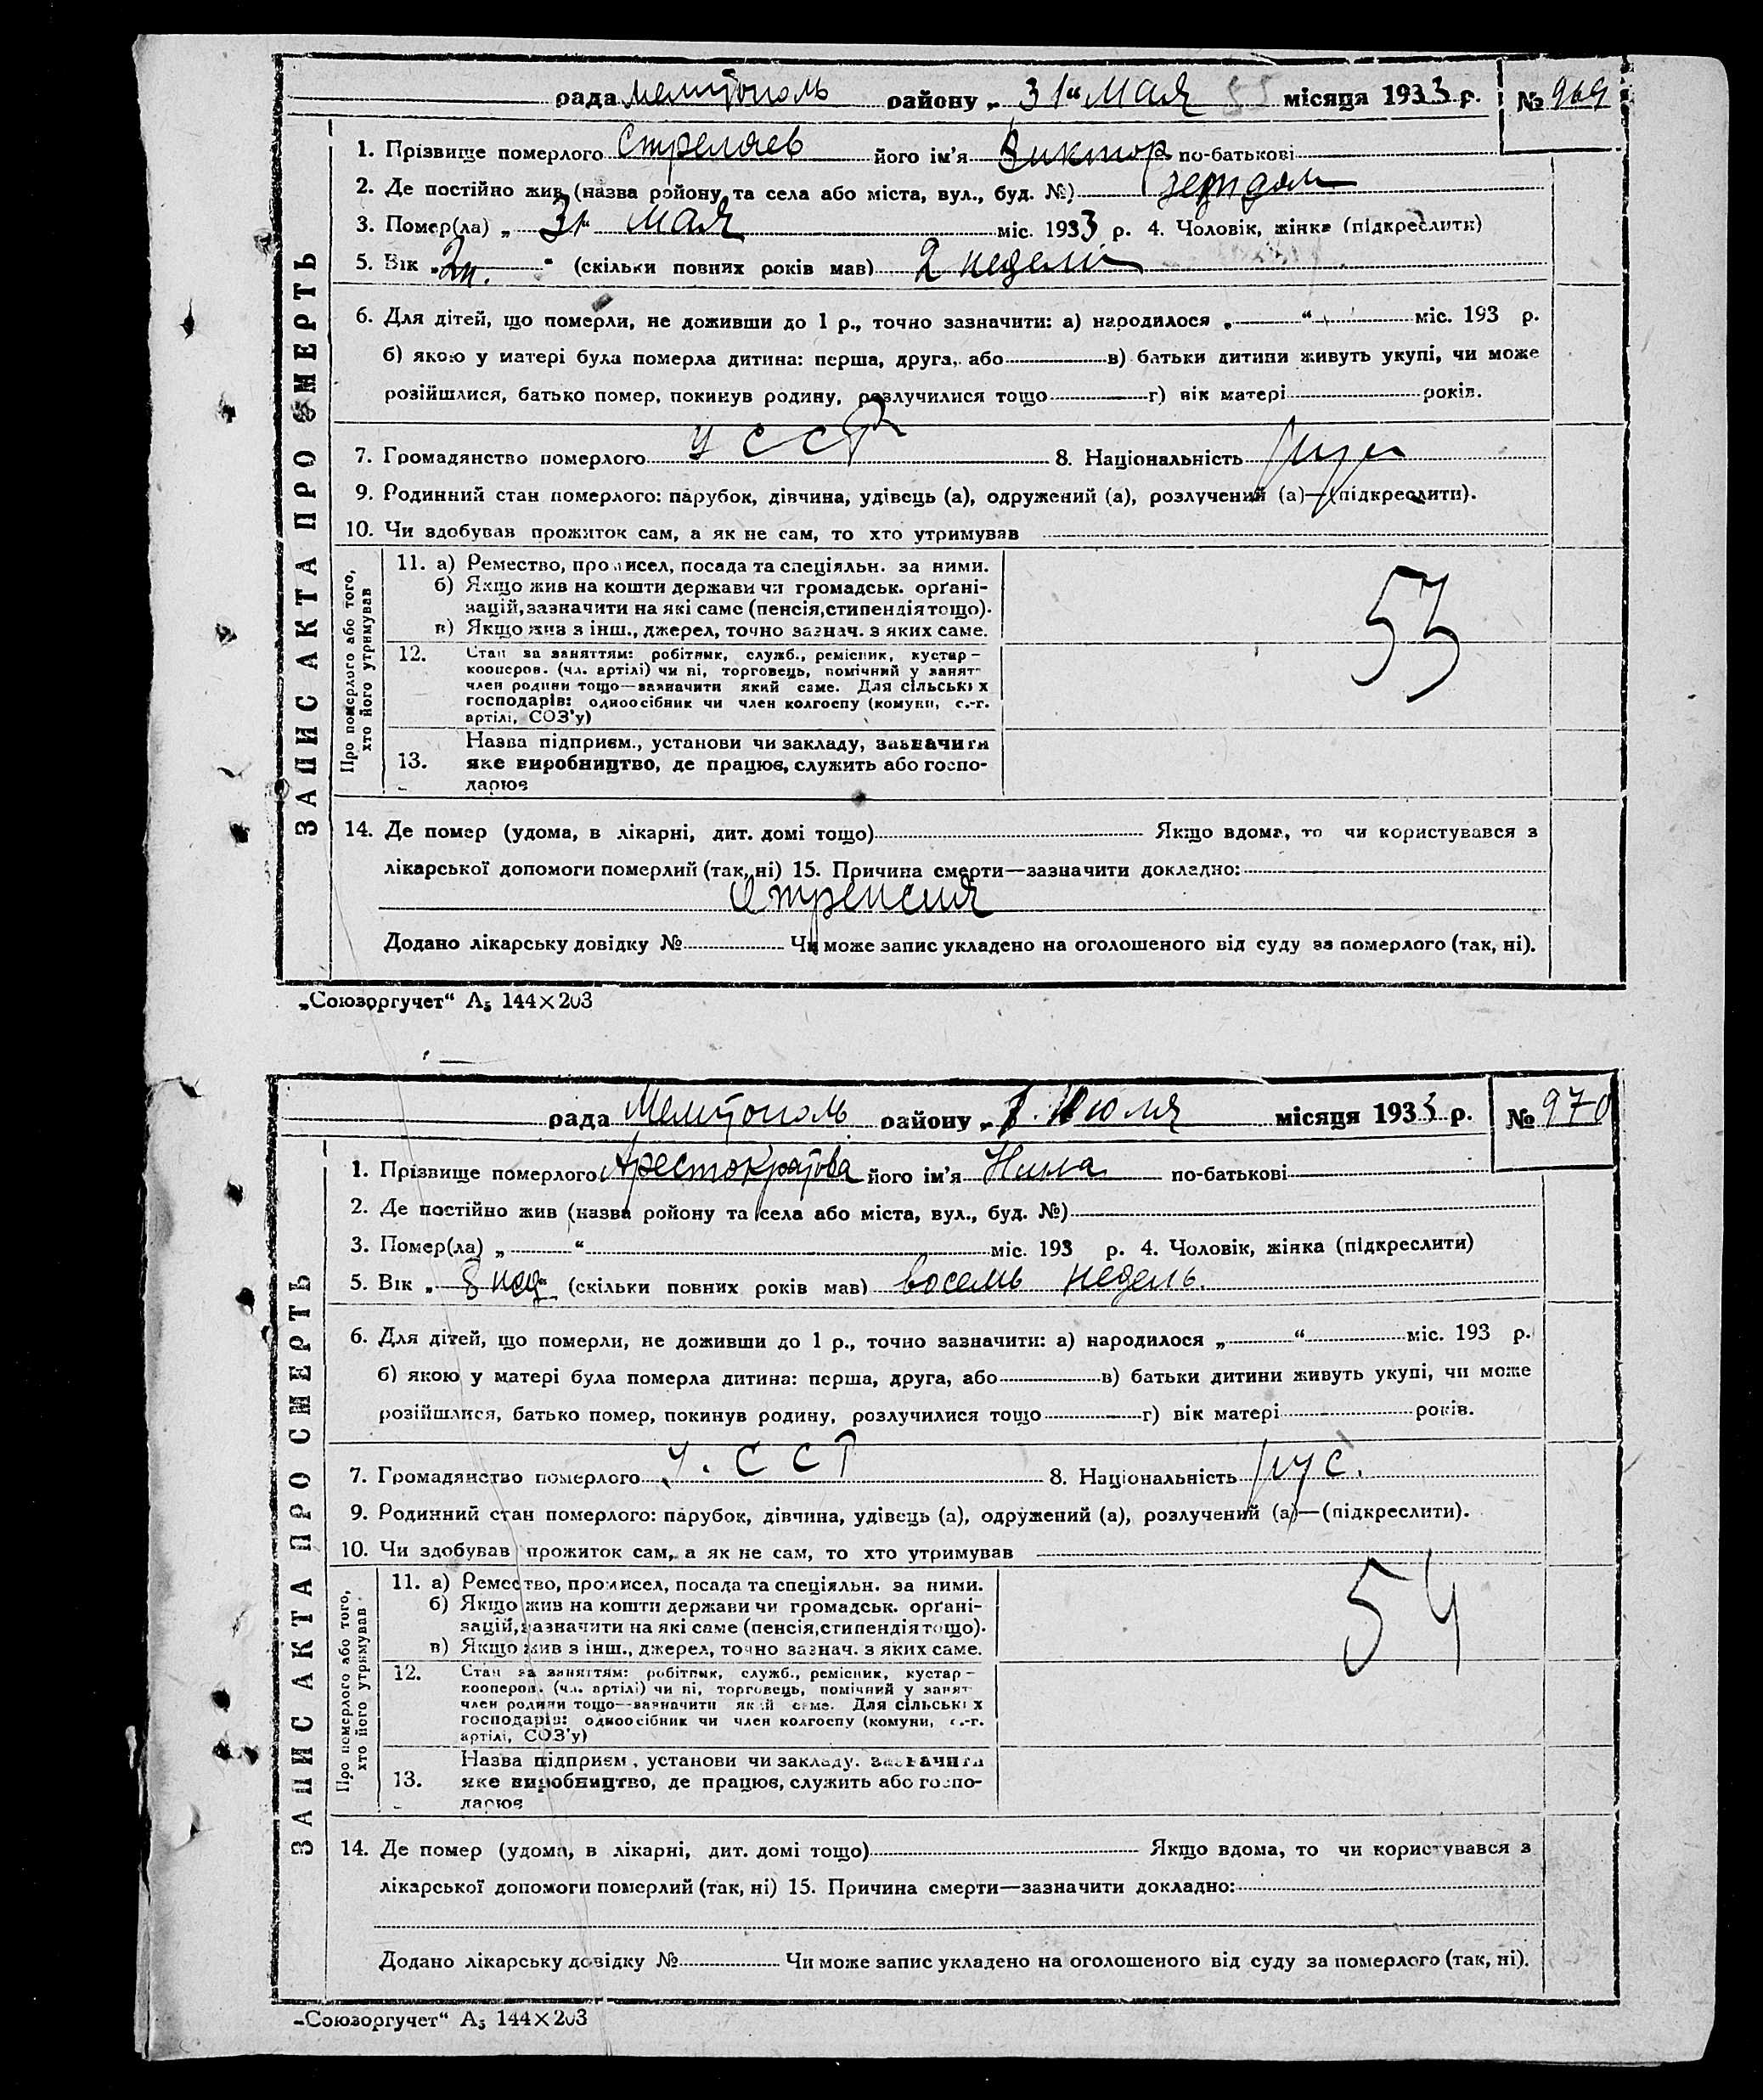 рада Мелитополь району „ 31" Мая місяця 1933 р. № 969
1. Прізвище померлого Стреляев його ім'я Виктор по-батькові
2. Де постійно жив (назва району та села або міста, вул., буд. №)
3. Помер(ла) „ 31" мая міс. 1933 р. 4. Чоловік, жінка (підкреслити)
5. Вік „ 2н. " (скільки повних років мав) 2 недели
6. Для дітей, що померли, не доживши до 1 р., точно зазначити: а) народилося „ “ міс. 193 р.
б) якою у матері була померла дитина: перша, друга, або в) батьки дитини живуть укупі, чи може
розійшлися, батько помер, покинув родину, розлучилися тощо г) вік матері років.
7. Громадянство померлого УССР 8. Національність рус
9. Родинний стан померлого: парубок, дівчина, удівець (а), одружений (а), розлучений (а)—(підкреслити).
10. Чи здобував прожиток сам, а як не сам, то хто утримував
ЗАПИС АКТА ПРО СМЕРТЬ
Про померлого або того, хто його утримував
11. а) Ремество, промисел, посада та спеціяльн. за ними.
б) Якщо жив на кошти держави чи громадськ. орґані-
зацій, зазначити на які саме (пенсія, стипендія тощо).
в) Якщо жив з інш., джерел, точно зазнач. з яких саме.
53
12. Стан за заняттям: робітник, служб., ремісник, кустар-
кооперов. (чл. артілі) чи ні, торговець, помічний у занят
член родини тощо—зазначити який саме. Для сільських
господарів: одноосібник чи член колгоспу (комуни, с.-г.
артілі, СОЗ'у)
13. Назва підприєм., установи чи закладу, зазначити
яке виробництво, де працює, служить або госпо-
дарює
14. Де помер (удома, в лікарні, дит. домі тощо) Якщо вдома, то чи користувався з
лікарської допомоги померлий (так, ні) 15. Причина смерти—зазначити докладно:
Атрепсия
Додано лікарську довідку № Чи може запис укладено на оголошеного від суду за померлого (так, ні).
„Союзоргучет“ А₅ 144×203
рада Мелитополь району „ 1. Июля місяця 1933 р. № 970
1. Прізвище померлого Арестократова його ім'я Нина по-батькові
2. Де постійно жив (назва району та села або міста, вул., буд. №)
3. Помер(ла) „ “ міс. 193 р. 4. Чоловік, жінка (підкреслити)
5. Вік „ 8 нед “ (скільки повних років мав) восемь недель.
6. Для дітей, що померли, не доживши до 1 р., точно зазначити: а) народилося „ “ міс. 193 р.
б) якою у матері була померла дитина: перша, друга, або в) батьки дитини живуть укупі, чи може
розійшлися, батько помер, покинув родину, розлучилися тощо г) вік матері років.
7. Громадянство померлого У. ССР 8. Національність рус.
9. Родинний стан померлого: парубок, дівчина, удівець (а), одружений (а), розлучений (а)—(підкреслити).
10. Чи здобував прожиток сам, а як не сам, то хто утримував
ЗАПИС АКТА ПРО СМЕРТЬ
Про померлого або того, хто його утримував
11. а) Ремество, промисел, посада та спеціяльн. за ними.
б) Якщо жив на кошти держави чи громадськ. орґані-
зацій, зазначити на які саме (пенсія, стипендія тощо).
в) Якщо жив з інш., джерел, точно зазнач. з яких саме.
54
12. Стан за заняттям: робітник, служб., ремісник, кустар-
кооперов. (чл. артілі) чи ні, торговець, помічний у занят
член родини тощо—зазначити який саме. Для сільських
господарів: одноосібник чи член колгоспу (комуни, с.-г.
артілі, СОЗ'у)
13. Назва підприєм., установи чи закладу, зазначити
яке виробництво, де працює, служить або госпо-
дарює
14. Де помер (удома, в лікарні, дит. домі тощо) Якщо вдома, то чи користувався з
лікарської допомоги померлий (так, ні) 15. Причина смерти—зазначити докладно:
Додано лікарську довідку № Чи може запис укладено на оголошеного від суду за померлого (так, ні).
„Союзоргучет“ А₅ 144×203